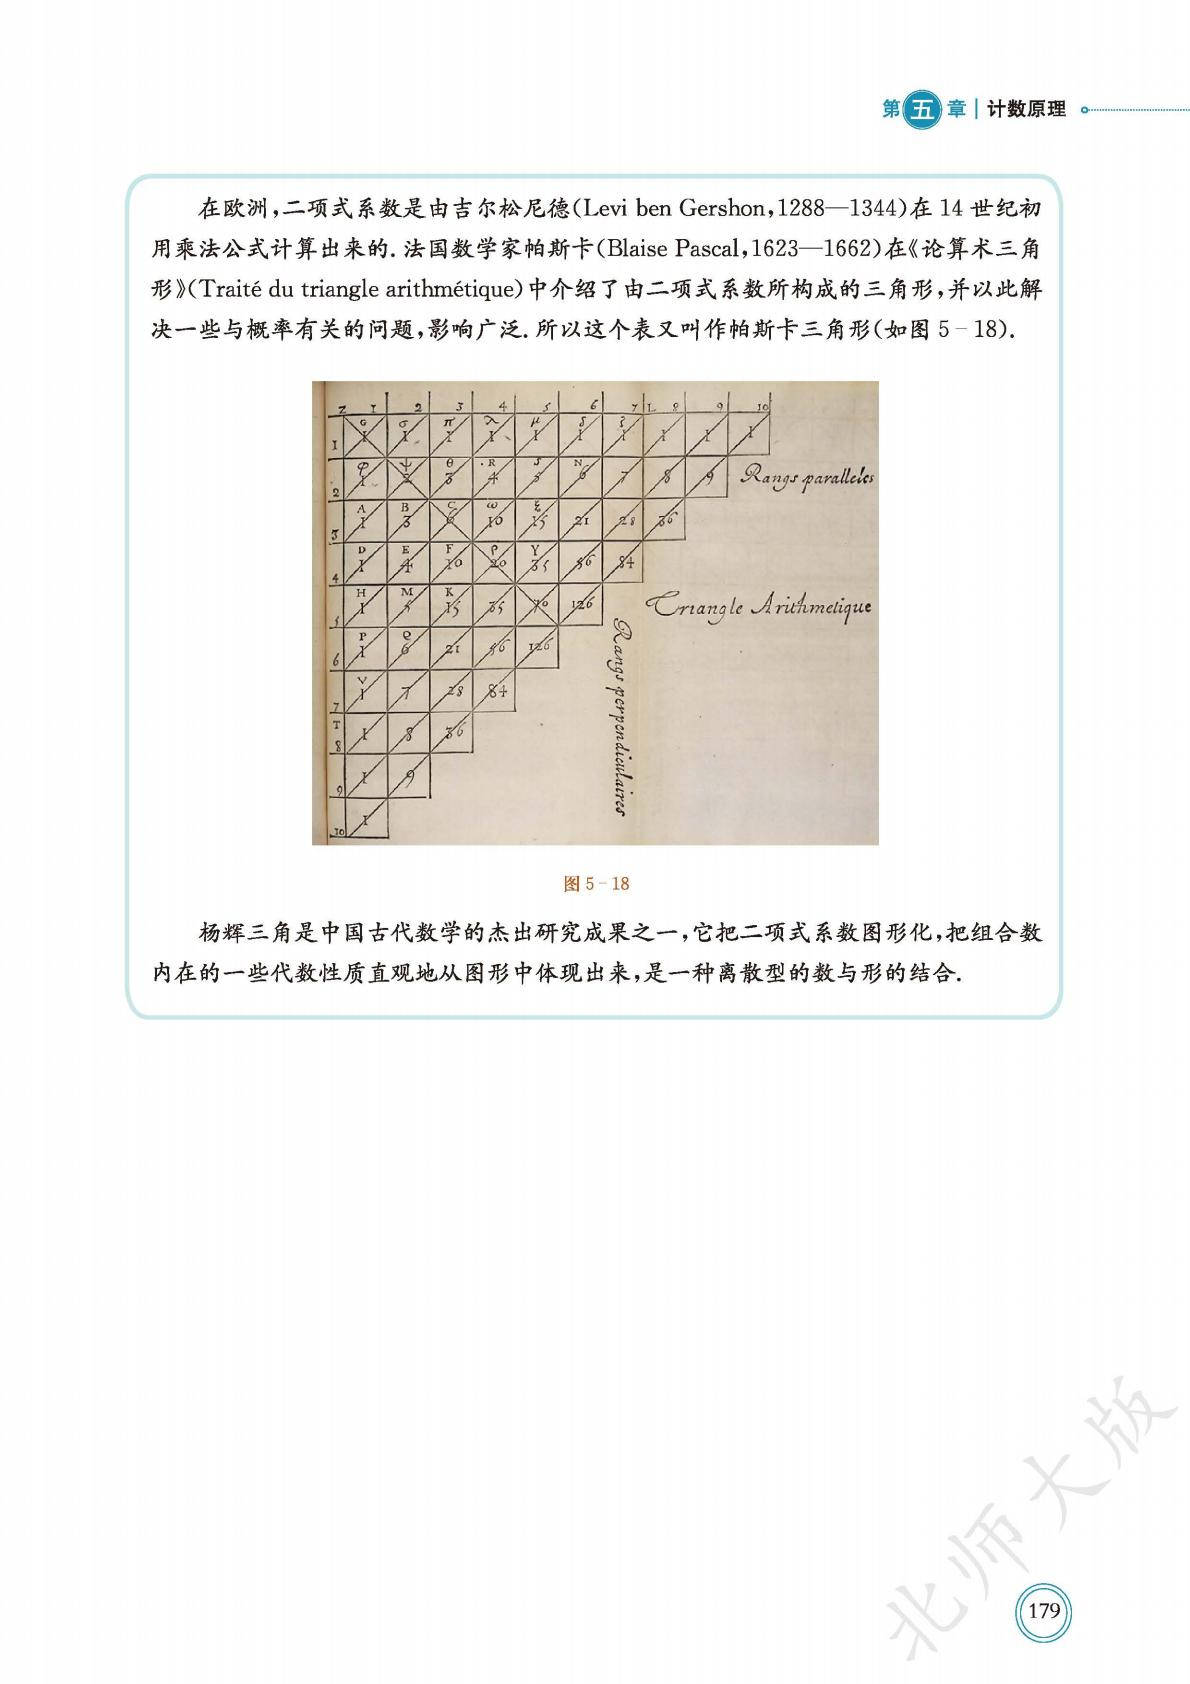 第五章 | 计数原理
在欧洲,二项式系数是由吉尔松尼德(Levi ben Gershon,1288—1344)在 14 世纪初
用乘法公式计算出来的. 法国数学家帕斯卡(Blaise Pascal,1623—1662)在《论算术三角
形》(Traité du triangle arithmétique)中介绍了由二项式系数所构成的三角形,并以此解
决一些与概率有关的问题,影响广泛. 所以这个表又叫作帕斯卡三角形(如图 5-18).
Z 1 2 3 4 5 6 7 L 8 9 10
G σ π λ μ δ ζ
1 1 1 1 1 1 1 1 1 1 1
φ ψ θ R S N
2 1 2 3 4 5 6 7 8 9 Rangs paralleles
A B C ω ξ
3 1 3 6 10 15 21 28 36
D E F ρ Y
4 1 4 10 20 35 56 84
H M K
5 1 5 15 35 70 126 Triangle Arithmetique
P Q
6 1 6 21 56 126 Rangs perpendiculaires
V
7 1 7 28 84
T
8 1 8 36
9 1 9
10 1
图 5-18
杨辉三角是中国古代数学的杰出研究成果之一,它把二项式系数图形化,把组合数
内在的一些代数性质直观地从图形中体现出来,是一种离散型的数与形的结合.
北师大版
179